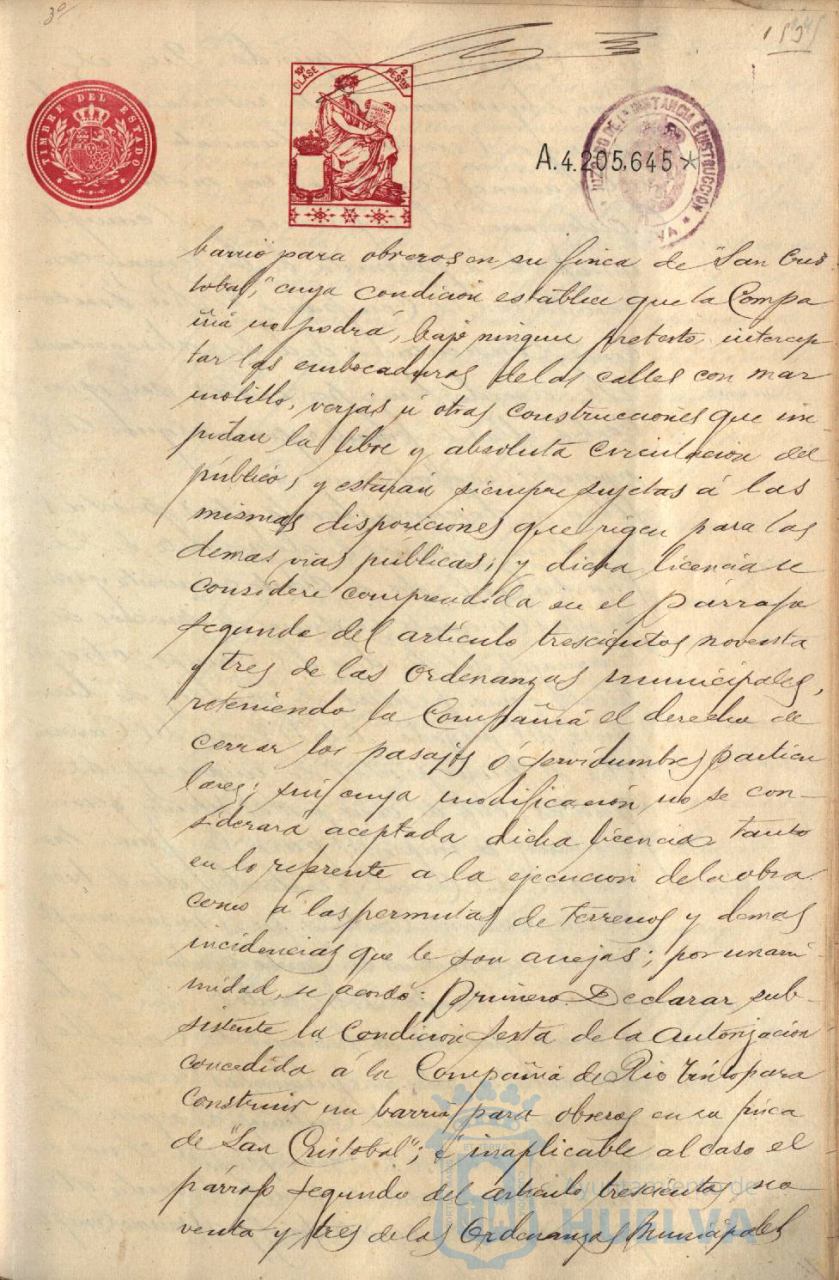 3º
TIMBRE DEL ESTADO
10ª CLASE 2 PESTAS
A.4.205,645*
JUZGADO DE 1ª INSTANCIA E INSTRUCCIÓN
barrio para obreros en su finca de "San Cris
tobal", cuya condición establece que la Compa
ñia no podrá, bajo ningun pretesto intercep
tar las embocaduras de las calles con mar
molillo, verjas ú otras construcciones que im
pidan la libre y absoluta circulacion del
público, y estarán siempre sujetas á las
mismas disposiciones que rigen para las
demas vias públicas; y dicha licencia se
considere comprendida en el párrafo
segundo del artículo trescientos noventa
y tres de las Ordenanzas municipales,
reteniendo la Compañia el derecho de
cerrar los pasajes ó servidumbres particu
lares; sin cuya modificación no se con-
siderará aceptada dicha licencia tanto
en lo referente á la ejecucion de la obra
como á las permutas de terrenos y demas
incidencias que le son anejas; por unani
midad, se acordó: Primero. Declarar sub-
sistente la condicion sexta de la autorizacion
concedida á la Compañia de Rio Tinto para
construir un barrio para obreros en su finca
de "San Cristobal"; é inaplicable al caso el
párrafo segundo del artículo trescientos no
venta y tres de las Ordenanzas Municipales
Ayuntamiento de
HUELVA